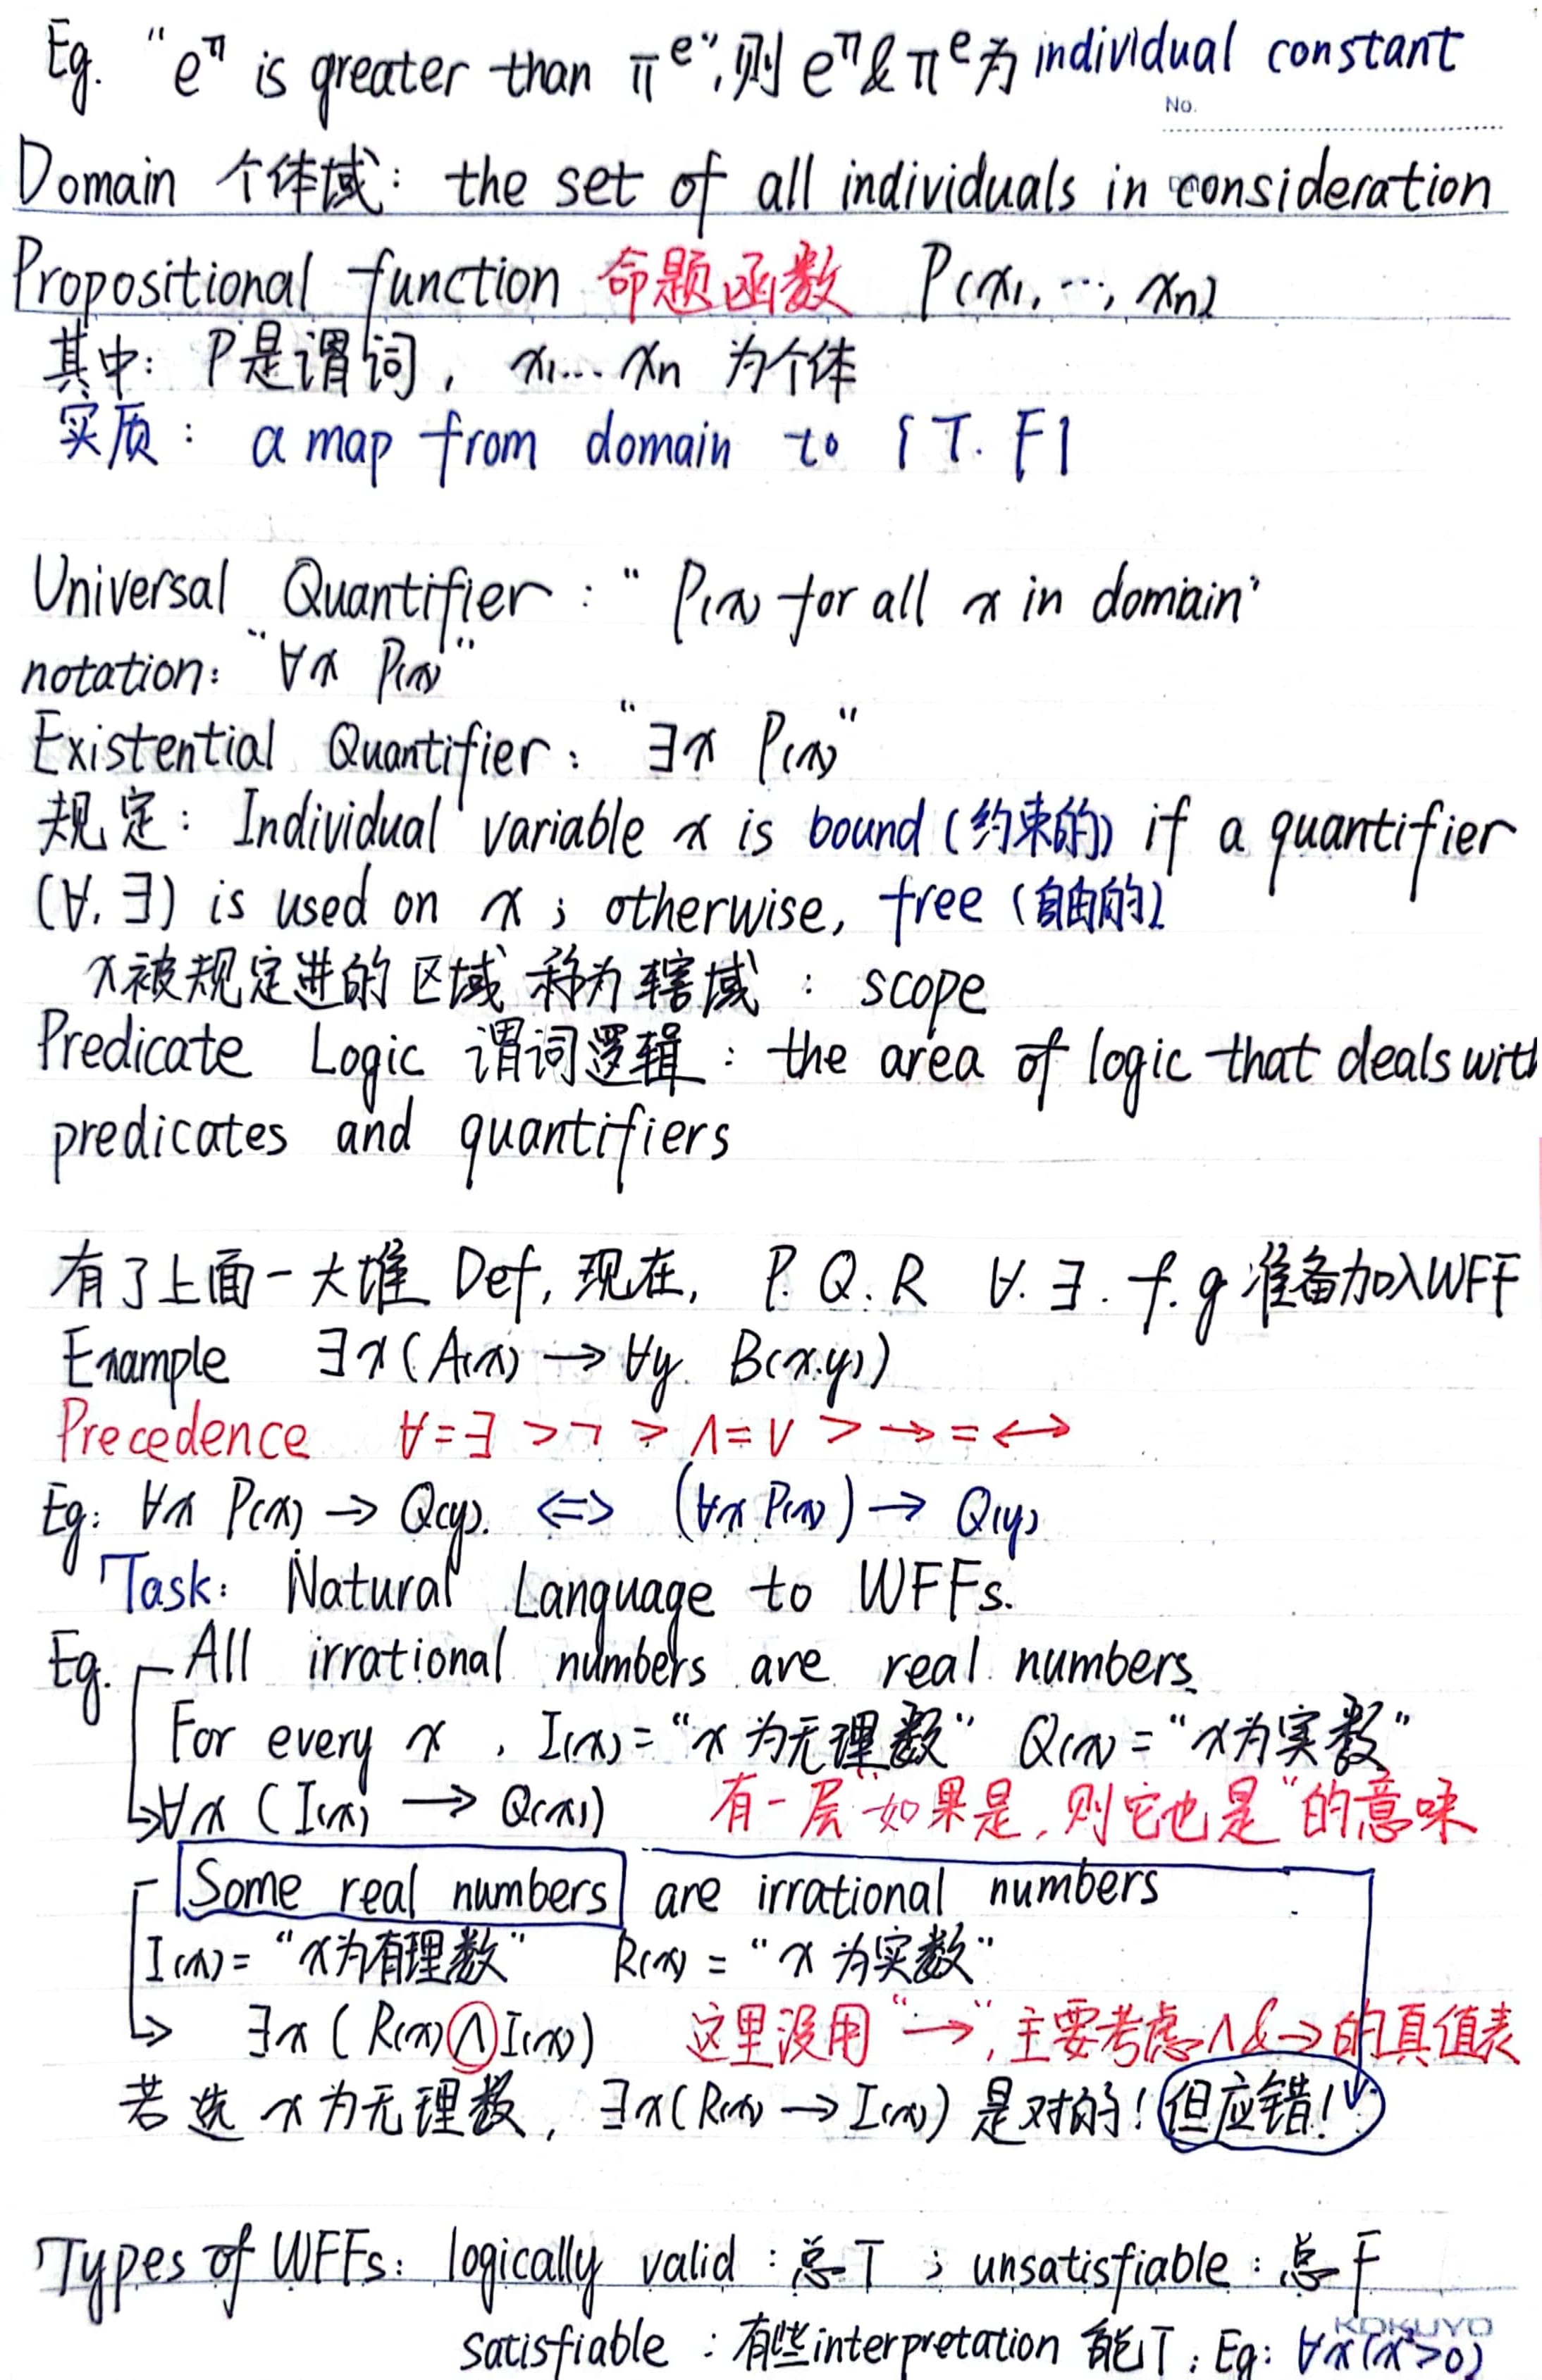 Eg. "e^π is greater than π^e", 则 e^π & π^e 为 individual constant
No.
Domain 个体域: the set of all individuals in consideration
Propositional function 命题函数 P(x₁, ···, xₙ)
其中: P是谓词, x₁... xₙ 为个体
实质: a map from domain to {T. F}
Universal Quantifier: "P(x) for all x in domain"
notation: "∀x P(x)"
Existential Quantifier: "∃x P(x)"
规定: Individual variable x is bound (约束的) if a quantifier
(∀. ∃) is used on x; otherwise, free (自由的)
x被规定进的区域 称为辖域: scope
Predicate Logic 谓词逻辑: the area of logic that deals with
predicates and quantifiers
有了上面一大堆 Def, 现在, P. Q. R ∀. ∃. f. g 准备加入WFF
Example ∃x(A(x) → ∀y. B(x.y))
Precedence ∀=∃ > ¬ > ∧=∨ > → = ↔
Eg: ∀x P(x) → Q(y). ⇔ (∀x P(x)) → Q(y)
Task: Natural Language to WFFs.
Eg. All irrational numbers are real numbers.
For every x, I(x) = "x 为无理数" Q(x) = "x为实数"
↳∀x (I(x) → Q(x)) 有一层"如果是, 则它也是"的意味
Some real numbers are irrational numbers
I(x) = "x为有理数" R(x) = "x 为实数"
↳ ∃x (R(x) ∧ I(x)) 这里没用"→", 主要考虑∧&→的真值表
若选 x 为无理数, ∃x(R(x) → I(x)) 是对的! 但应错!
Types of WFFs: logically valid: 总T; unsatisfiable: 总F
KOKUYO
satisfiable: 有些interpretation 能T; Eg: ∀x(x²>0)